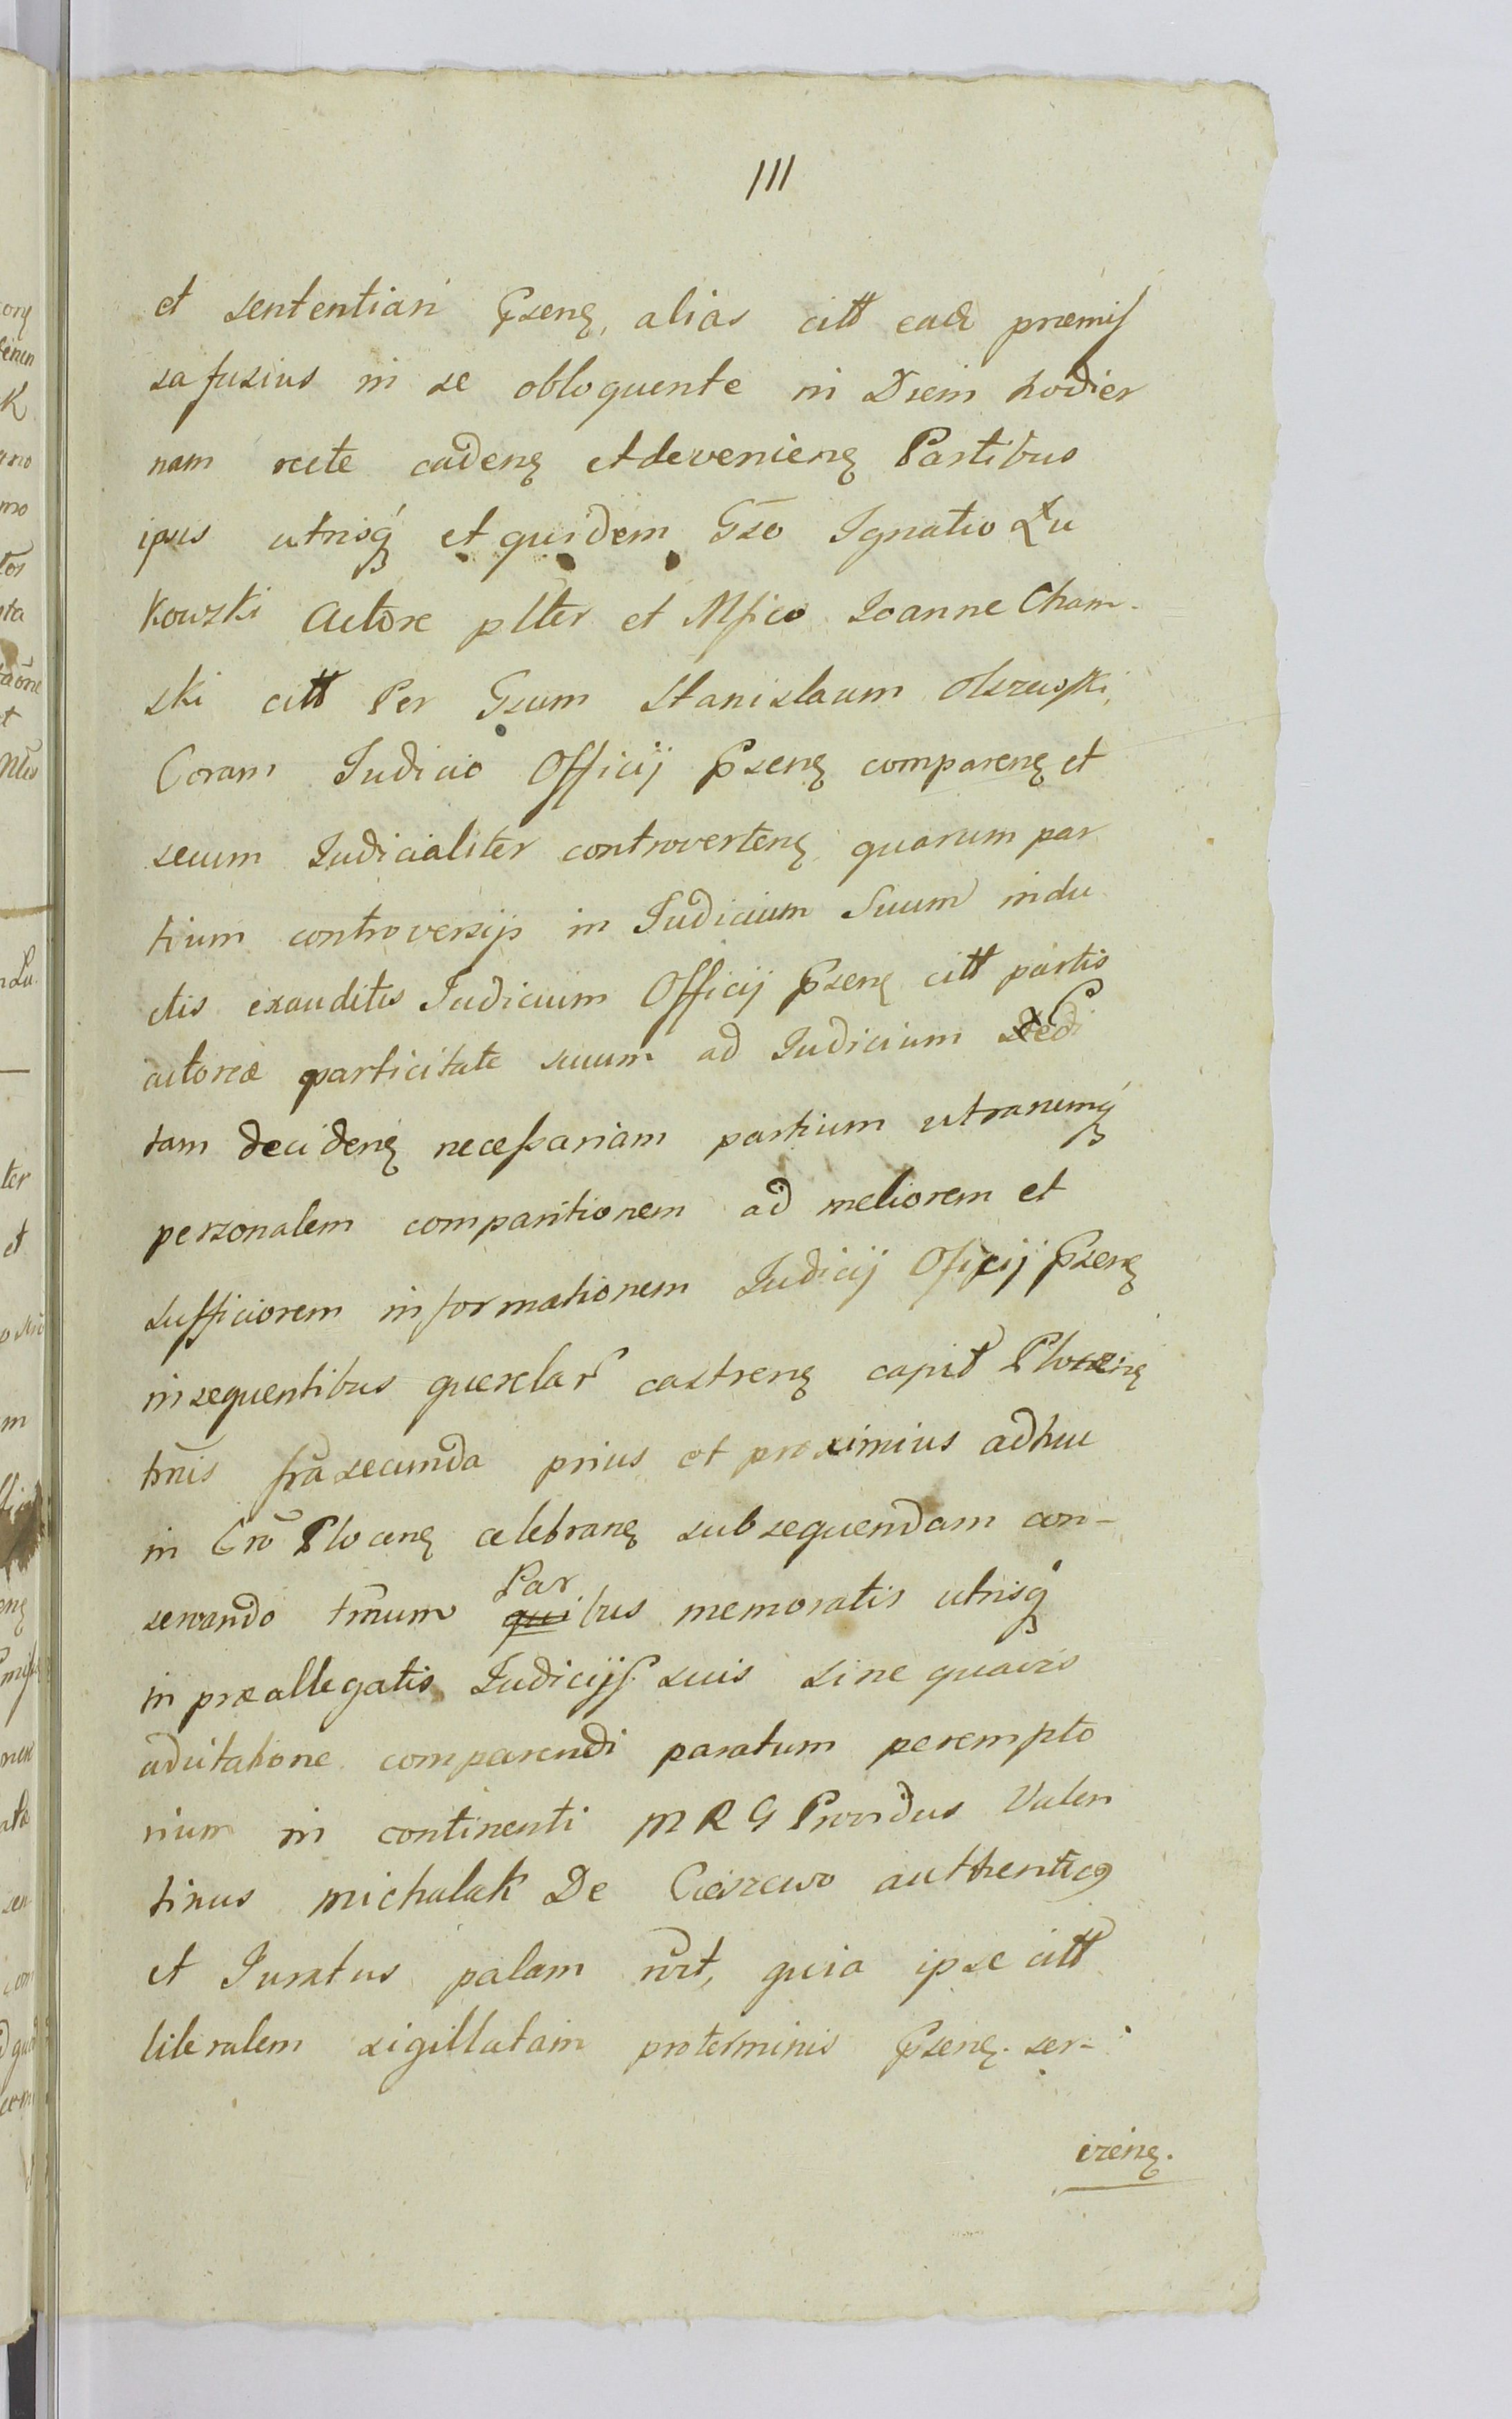 111
et sententiarˉ Psenę, alias citt eade præmiſ
sa fusius in se obloquente in Diem hodier
nam recte cadenę et devenienę Partibus
ipsis utrisq́ et quidem Gso Ignatio Lu
kowski Actore plter et Mfico Joanne Cham-
ski citt Per Gsum Stanislaum Olszewski,
Coram Judicio Officij Psenę comparenę et
secum Judicialiter controvertenę quarum par
tium controversijs in Judicium Suum indu
ctis exauditis Judicium Officij Psenę citt partis
actoreæ particitate suum ad Judicium
tam decidenę necessariam partium utrarumq́
personalem comparitionem ad meliorem et
sufficiorem informationem Judicij Oficij Psenę
in sequentibus querelar castrenę capit Plocenę
tm̃is frã secunda prius et proximius adhuc
in Cro Plocenę celebranę subsequendam con-
servando tm̃um Par
quibus memoratis utrisq́
in præallegatis Judicijs suis sine quavis
adcitatione comparendi paratum perempto
rium in continenti M R G Providus Valen
tinus Michalak De Cieszewo authenticꝯ
et Juratus palam rẽt, quia ipse citt
literalem sigillatam pro terminis Psenę ser-
izenę.